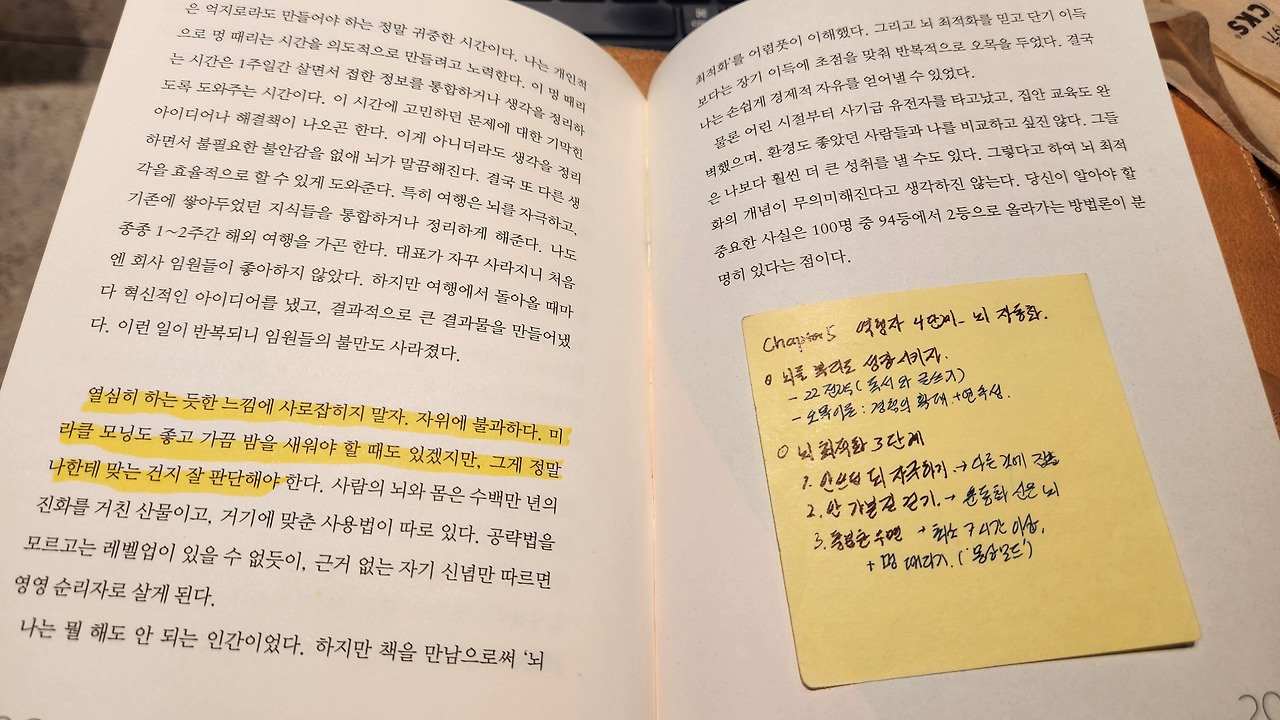 은 억지로라도 만들어야 하는 정말 귀중한 시간이다. 나는 개인적
으로 멍 때리는 시간을 의도적으로 만들려고 노력한다. 이 멍 때리
는 시간은 1주일간 살면서 접한 정보를 통합하거나 생각을 정리하
도록 도와주는 시간이다. 이 시간에 고민하던 문제에 대한 기막힌
아이디어나 해결책이 나오곤 한다. 이게 아니더라도 생각을 정리
하면서 불필요한 불안감을 없애 뇌가 말끔해진다. 결국 또 다른 생
각을 효율적으로 할 수 있게 도와준다. 특히 여행은 뇌를 자극하고,
기존에 쌓아두었던 지식들을 통합하거나 정리하게 해준다. 나도
종종 1~2주간 해외 여행을 가곤 한다. 대표가 자꾸 사라지니 처음
엔 회사 임원들이 좋아하지 않았다. 하지만 여행에서 돌아올 때마
다 혁신적인 아이디어를 냈고, 결과적으로 큰 결과물을 만들어냈
다. 이런 일이 반복되니 임원들의 불만도 사라졌다.
열심히 하는 듯한 느낌에 사로잡히지 말자. 자위에 불과하다. 미
라클 모닝도 좋고 가끔 밤을 새워야 할 때도 있겠지만, 그게 정말
나한테 맞는 건지 잘 판단해야 한다. 사람의 뇌와 몸은 수백만 년의
진화를 거친 산물이고, 거기에 맞춘 사용법이 따로 있다. 공략법을
모르고는 레벨업이 있을 수 없듯이, 근거 없는 자기 신념만 따르면
영영 순리자로 살게 된다.
나는 뭘 해도 안 되는 인간이었다. 하지만 책을 만남으로써 ‘뇌
최적화’를 어렴풋이 이해했다. 그리고 뇌 최적화를 믿고 단기 이득
보다는 장기 이득에 초점을 맞춰 반복적으로 오목을 두었다. 결국
나는 손쉽게 경제적 자유를 얻어낼 수 있었다.
물론 어린 시절부터 사기급 유전자를 타고났고, 집안 교육도 완
벽했으며, 환경도 좋았던 사람들과 나를 비교하고 싶진 않다. 그들
은 나보다 훨씬 더 큰 성취를 낼 수도 있다. 그렇다고 하여 뇌 최적
화의 개념이 무의미해진다고 생각하진 않는다. 당신이 알아야 할
중요한 사실은 100명 중 94등에서 2등으로 올라가는 방법론이 분
명히 있다는 점이다.
Chapter 5 역행자 4단계- 뇌 자동화.
o 뇌를 복리로 성장시키자.
- 22전략(독서와 글쓰기)
- 오목이론: 경험의 확대 + 연속성.
o 뇌 최적화 3단계
1. 안쓰던 뇌 자극하기 → 다른 것에 집중
2. 안 가본 길 걷기. → 운동화 신은 뇌
3. 충분한 수면 → 최소 7시간 이상.
+ 멍 때리기. ('몽상모드')
CKS
⌘